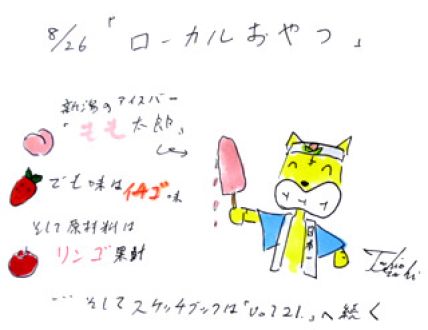 8/26「ローカルおやつ」
新潟のアイスバー
「もも太郎」
でも味はイチゴ味
そして原材料は
リンゴ果汁
日本一
… そしてスケッチブックは「vol21.」へ続く